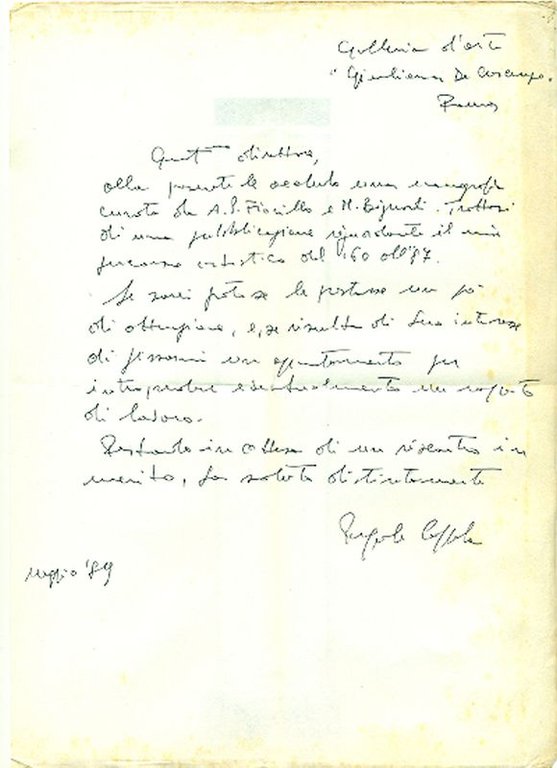 Galleria d'arte
"Giuliana De Crescenzo.
Roma
Gent.ma direttrice,
alla presente le accludo una monografia
curata da A. P. Fiorillo e M. Bignardi. Trattasi
di una pubblicazione riguardante il mio
percorso artistico dal '60 all'87.
Le sarei grato se le prestasse un po'
di attenzione, e, se risulta di Suo interesse
di fissarmi un appuntamento per
intraprendere eventualmente un rapporto
di lavoro.
Restando in attesa di un riscontro in
merito, La saluto distintamente
maggio '89